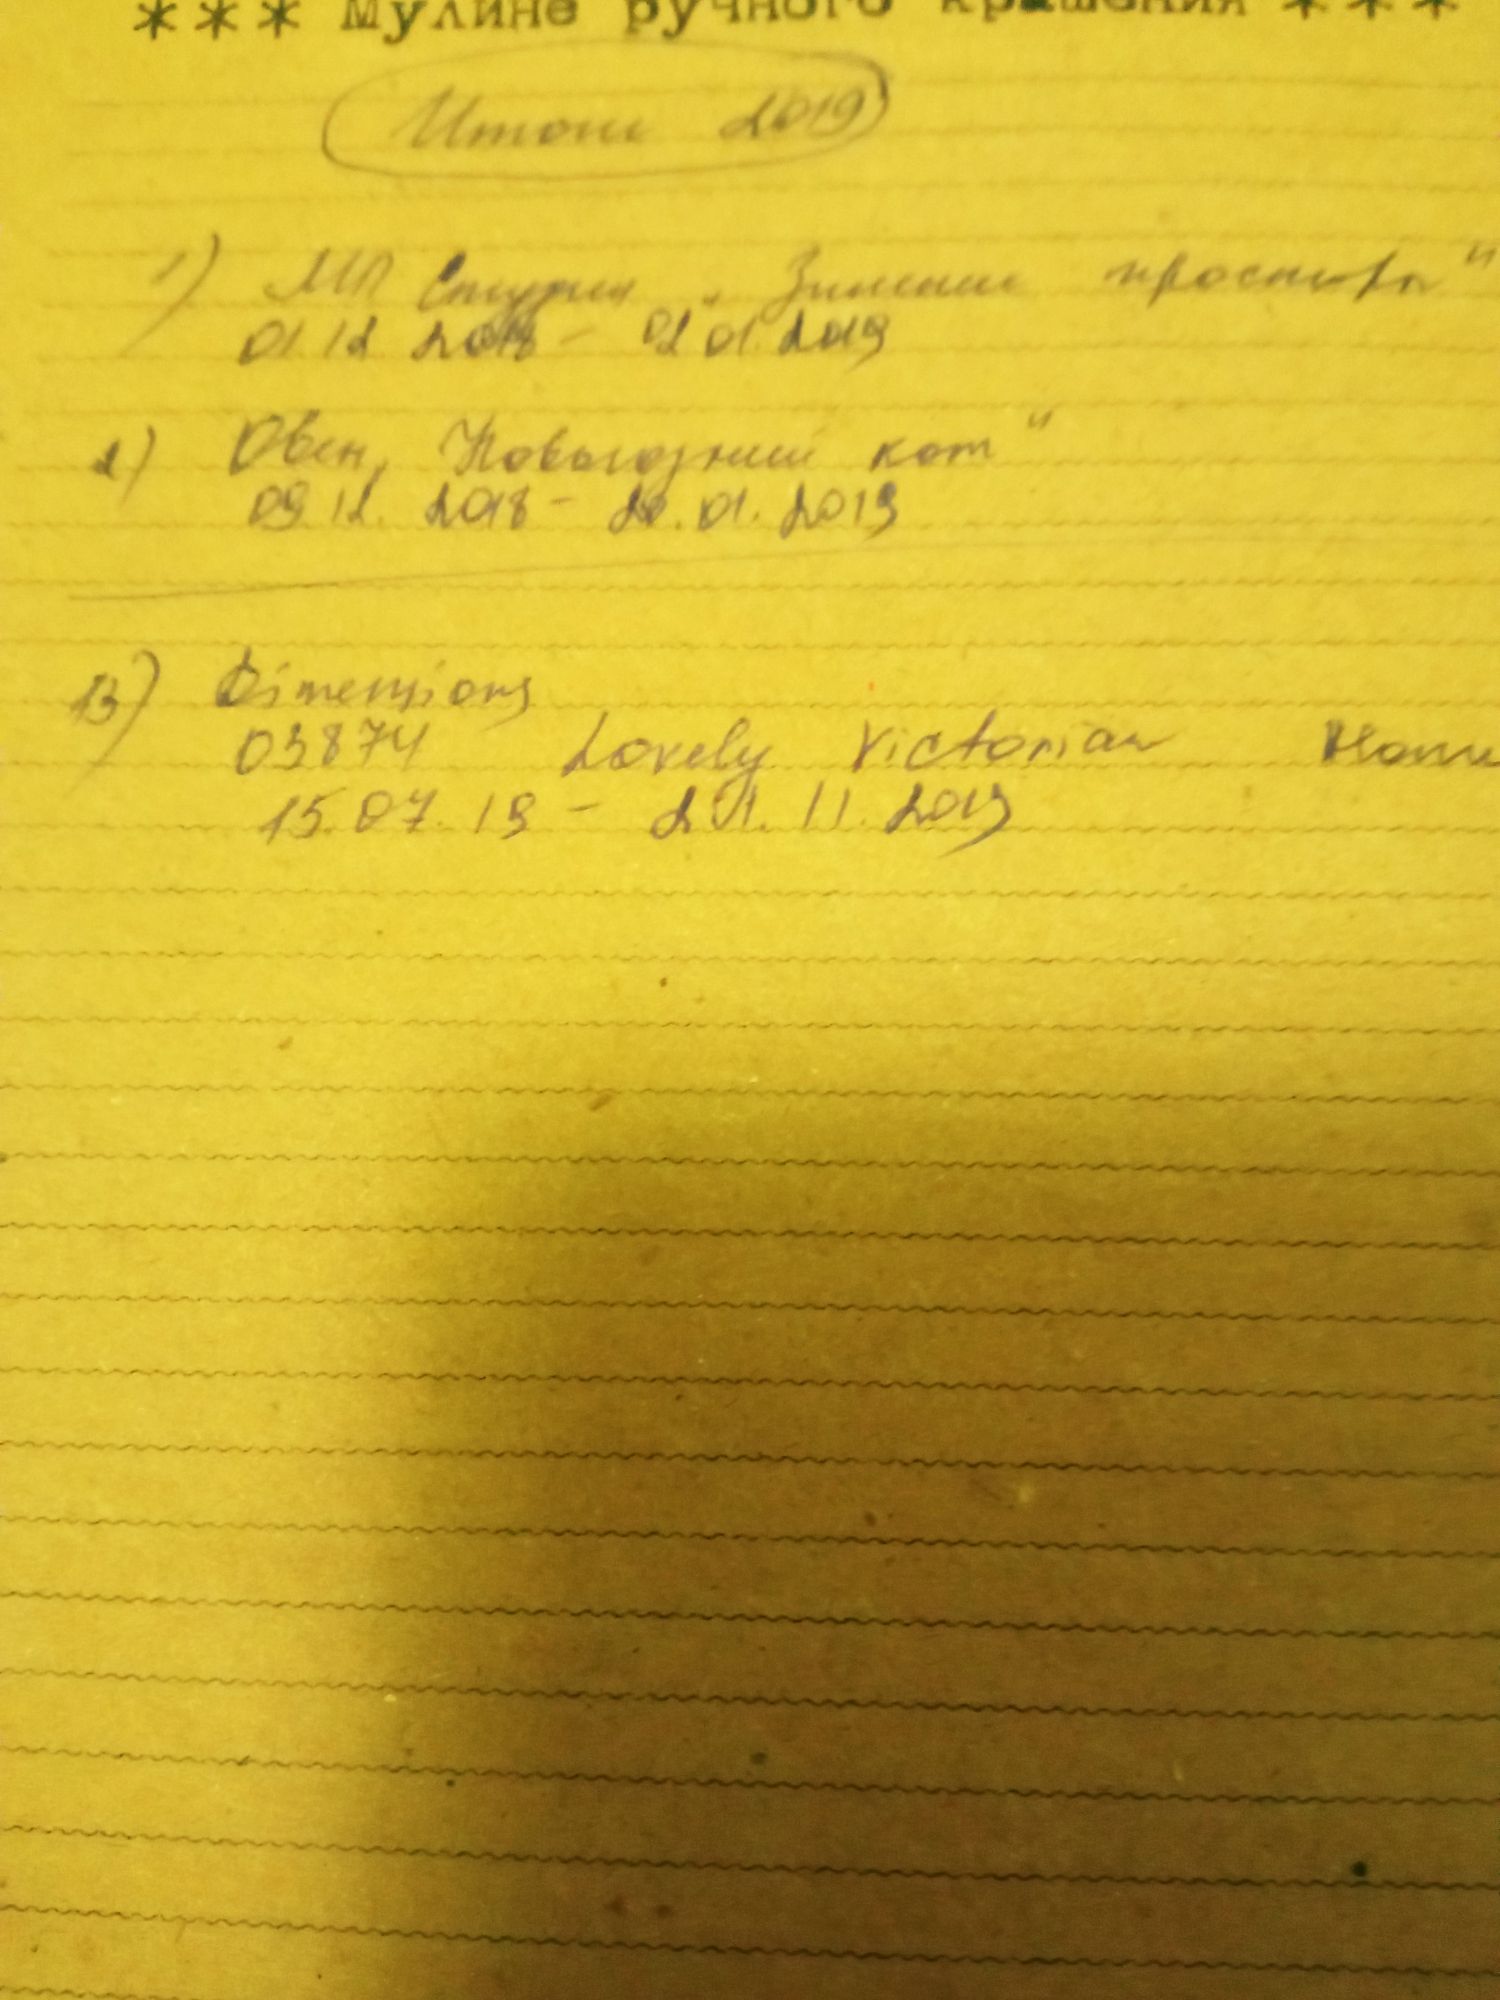 *** Мулине ручного крашения ***
Итоги 2019
1) МП Студия "Зимние просторы"
01.12 2018 - 02 01.2019
2) Овен, Новогодний кот"
09 12. 2018 - 20.01.2019
13) Dimensions
03874 Lovely Victorian Home
15.07.19 - 21.11.2019